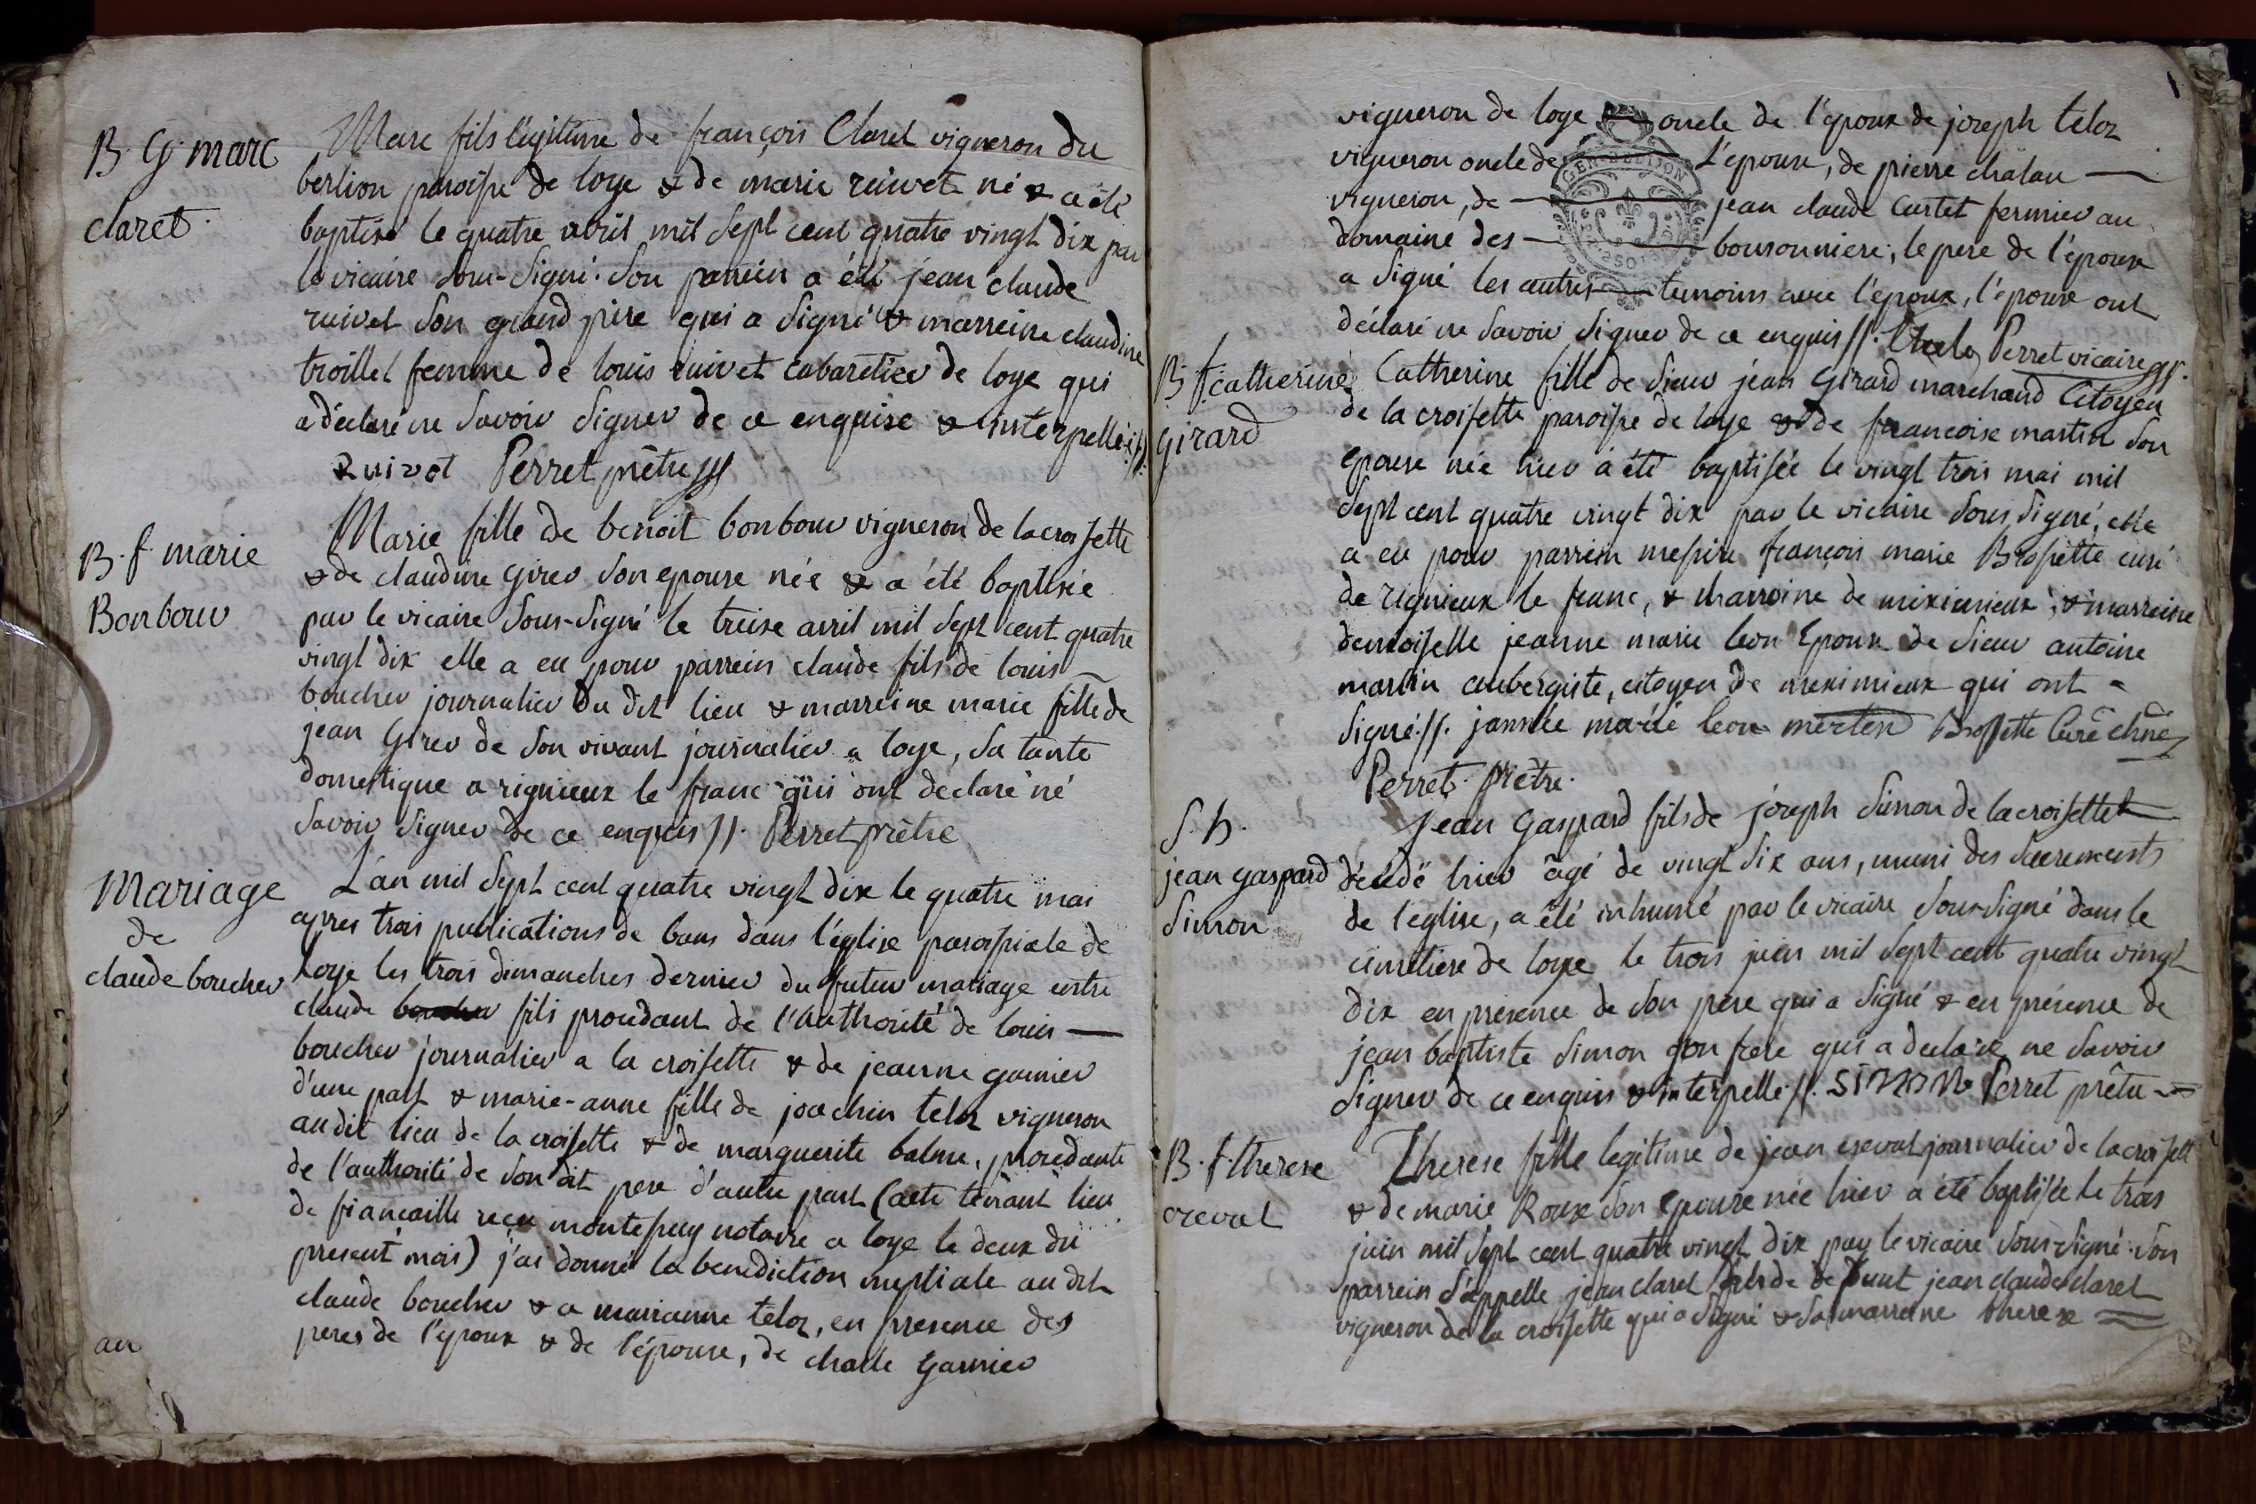 B. G. marc
claret.
Marc fils légitime de françois Claret vigneron du
berlion paroisse de loye & de marie ruivet né & a été
baptisé le quatre abril mil sept cent quatre vingt dix par
le vicaire sous-signé. son parrein a été jean claude
ruivet son grand père qui a signé & marreine claudine
troillet femme de louis ruivet cabaretier de loye qui
a déclaré ne savoir signer de ce enquise & interpellée //.
Ruivet Perret prêtre
B. f. marie
Bonbour
Marie fille de benoit bonbour vigneron de la croisette
& de claudine girer son epouse née & a été baptisée
par le vicaire sous-signé le treise avril mil sept cent quatre
vingt dix elle a eu pour parrein claude fils de louis
boucher journalier du dit lieu & marreine marie fille de
jean Girer de son vivant journalier a loye, sa tante
domestique a rignieux le franc qui ont declaré né
savoir signer de ce enquis //. Perret prêtre
Mariage
de
claude boucher
L'an mil sept cent quatre vingt dix le quatre mai
apres trois publications de bans dans l'église paroissiale de
Loye les trois dimanches dernier du futur mariage entre
claude boucher fils procedant de l'authorité de louis
boucher journalier a la croisette & de jeanne garnier
d'une part & marie-anne fille de joachin teloz vigneron
audit lieu de la croisette & de marguerite balme, procedante
de l'authorité de son dit pere d'autre part (acte tenant lieu
de fiancaille reçu montessuy notaire a loye le deux du
present mois) j'ai donné la benediction nuptiale au dit
claude boucher & a marianne teloz, en presence des
peres de l'epoux & de l'épouse, de charle Garnier
an
vigneron de loye oncle de l'époux de joseph teloz
vigneron oncle de L'épouse, de pierre chalan
vigneron, de jean claude Curtet fermier au
domaine des bouronniere, le pere de l'époux
a signé les autres temoins avec l'epoux, l'epouse ont
déclaré ne savoir signer de ce enquis //. Perret vicaire
B. f. catherine
Girard
Catherine fille de sieur jean Girard marchand Citoyen
de la croisette paroisse de loye & de francoise martin son
epouse née hier a été baptisée le vingt trois mai mil
sept cent quatre vingt dix par le vicaire sous signé, elle
a eu pour parrein messire françois marie Brossette curé
de rignieux le franc, & chanoine de meximieux, & marreine
demoiselle jeanne marie leon Epouse de sieur antoine
martin aubergiste, citoyen de meximieux qui ont
signé //. jannée marié leon merten Brossette Curé chne
Perret. Prêtre.
S. h.
jean gaspard
Simon
Jean Gaspard fils de joseph simon de la croisette
décédé hier âgé de vingt six ans, muni des sacrements
de l'eglise, a été inhumé par le vicaire sous-signé dans le
cimetiere de loye le trois juin mil sept cent quatre vingt
dix en presence de son pere qui a signé & en présence de
jean baptiste simon son frere qui a declaré ne savoir
signer de ce enquis & interpelle //. SIMON Perret prêtre
B. f. therese
creval
Therese fille legitime de jean creval journalier de la croisette
& de marie Roux son Epouse née hier a été baptisée le trois
juin mil sept cent quatre vingt dix par le vicaire sous-signé. son
parrein s'appelle jean claret fils de defunt jean claude claret
vigneron de la croisette qui a signé & sa marreine therese